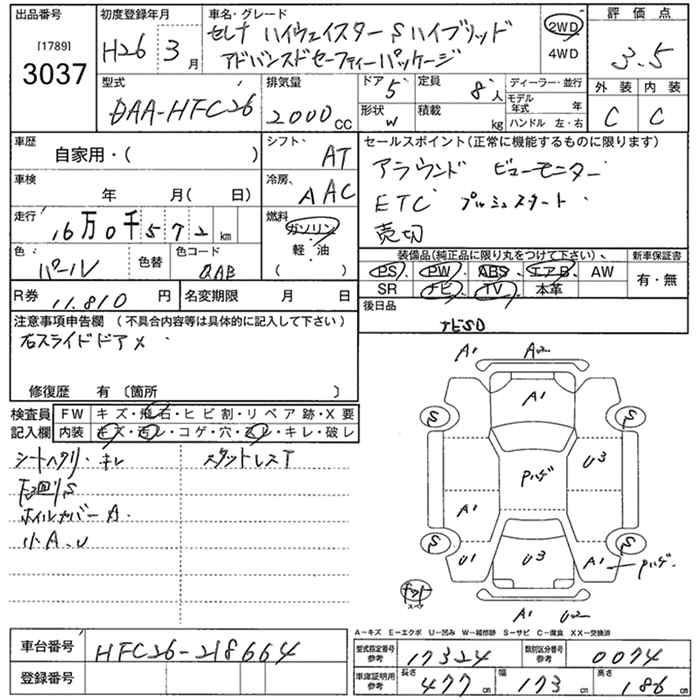 出品番号
[1789]
3037
初度登録年月
H26 3 月
車名・グレード
セレナ ハイウェイスター S ハイブリッド
アドバンスドセーフティーパッケージ
2WD
4WD
評価点
3.5
外装 内装
C C
型式
DAA-HFC26
排気量
2000 CC
ドア 5
定員 8 人
形状 W
積載 kg
ディーラー・並行
モデル年式 年
ハンドル 左・右
車歴
自家用・( )
シフト AT
車検
年 月( 日)
冷房 AAC
走行
16万0千572 km
燃料
ガソリン
軽・油
( )
色
パール
色替
色コード
QAB
R券 11,810 円
名変期限 月 日
セールスポイント(正常に機能するものに限ります)
アラウンド ビューモニター
ETC プッシュスタート
売切
装備品(純正品に限り丸をつけて下さい)
新車保証書
PS PW ABS エアB AW
SR ナビ TV 本革
有・無
後日品
ナビSD
注意事項申告欄(不具合内容等は具体的に記入して下さい)
右スライドドアメ
修復歴 有〔箇所 〕
検査員
記入欄
FW キズ・飛石・ヒビ割・リペア跡・X要
内装 キズ・汚レ・コゲ・穴・・キレ・破レ
シートヘタリ・キレ
スタットレスT
下廻りS
ホイルカバーA
小A、U
A1 A2
A1
S S
U3
Pハゲ
A1
S S
U1 U3 A1 Pハゲ
スペア
A1 U2
A−キズ E−エクボ U−凹み W−補修跡 S−サビ C−腐食 XX−交換済
車台番号 HFC26-218664
登録番号
型式指定番号
参考
17324
類別区分番号
参考
0074
車庫証明用
参考
長さ 477 cm
幅 173 cm
高さ 186 cm